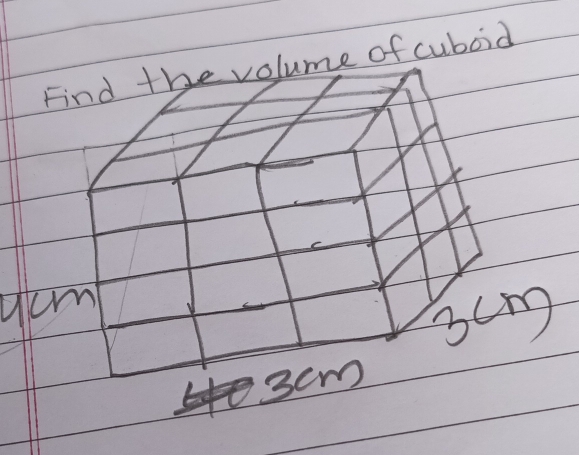 Find the volume of cuboid
4cm
3cm
3cm